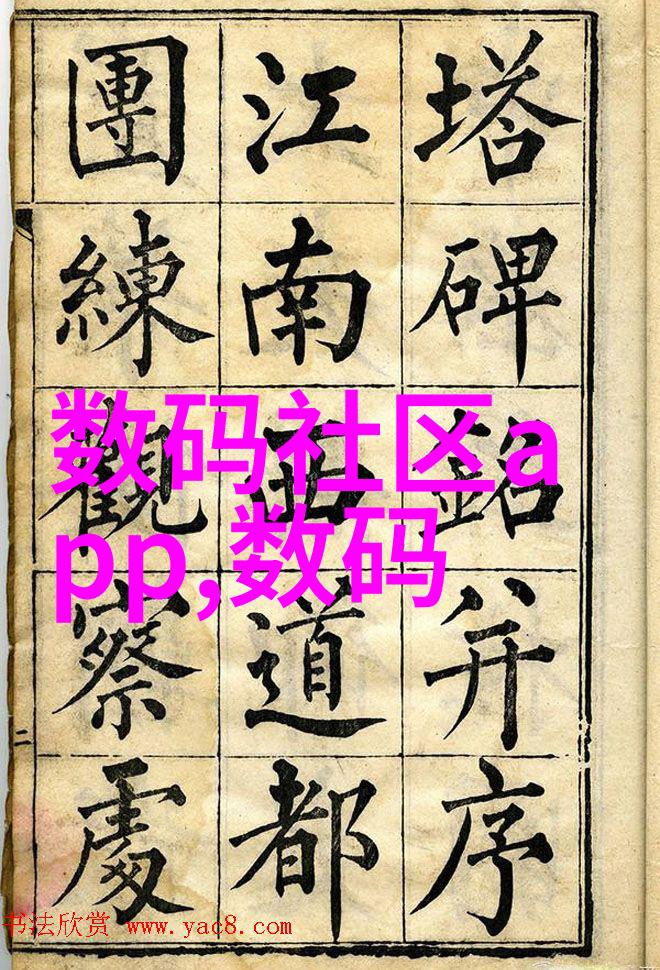 塔碑銘并序
江南西道都
團練觀察處
数码社区a
pp,数码
二
书法欣赏 www.yac8.com